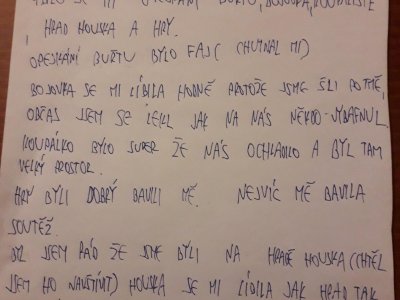 LÍBILO SE MI OPEKÁNÍ BUŘTU, BOJOVKA, KOUPALIŠTĚ
, HRAD HOUSKA A HRY.
OPEKÁNÍ BUŘTU BYLO FAJ( CHUTNAL MI)
BOJOVKA SE MI LÍBILA HODNĚ PROTOŽE JSME ŠLI POTMĚ,
OBČAS JSEM SE LEKL JAK NA NÁS NĚKDO VYBAFNUL.
KOUPÁLKO BYLO SUPER ŽE NÁS OCHLADILO A BYL TAM
VELKÝ PROSTOR.
HRY BYLI DOBRÝ BAVILI MĚ. NEJVÍC MĚ BAVILA
SOUTĚŽ.
BYL JSEM RÁD ŽE JSME BYLI NA HRADĚ HOUSKA(CHTĚL
JSEM HO NAVŠTÍVIT) HOUSKA SE MI LÍBILA JAK HRAD TAK